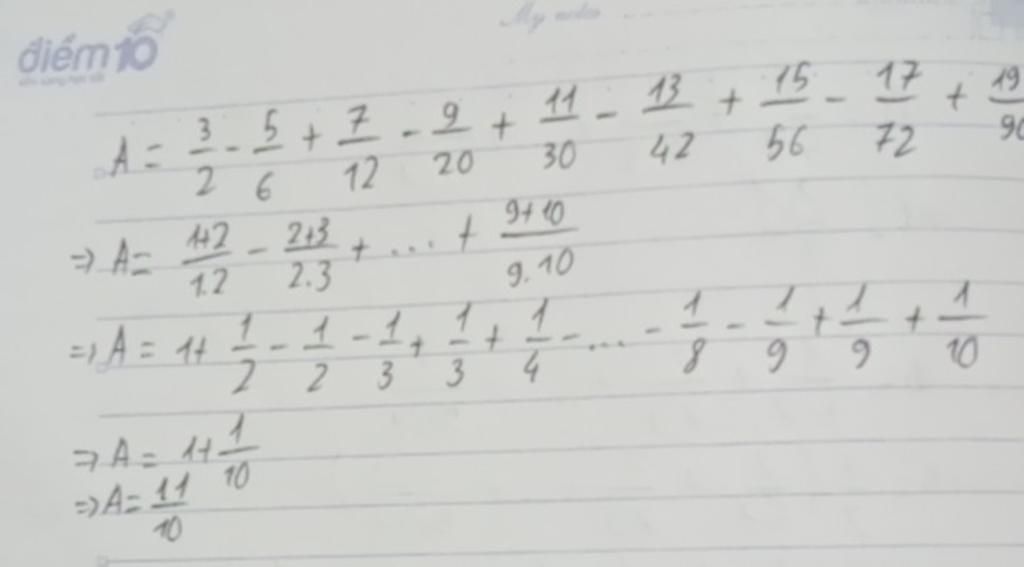 My notes
điểm10
A = 3/2 - 5/6 + 7/12 - 9/20 + 11/30 - 13/42 + 15/56 - 17/72 + 19/90
=> A = 1+2/1.2 - 2+3/2.3 + ... + 9+10/9.10
=> A = 1+ 1/2 - 1/2 - 1/3 + 1/3 + 1/4 - ... - 1/8 - 1/9 + 1/9 + 1/10
=> A = 1+ 1/10
=> A = 11/10